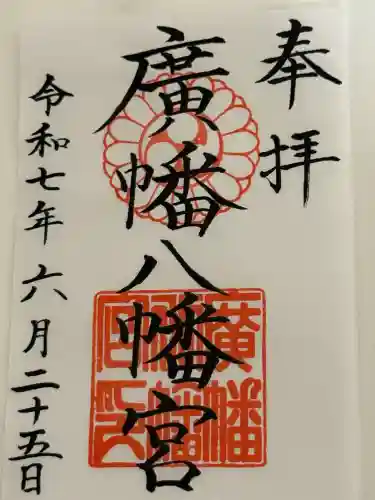 奉拝
廣幡八幡宮
令和七年六月二十五日
廣幡
八幡
宮印